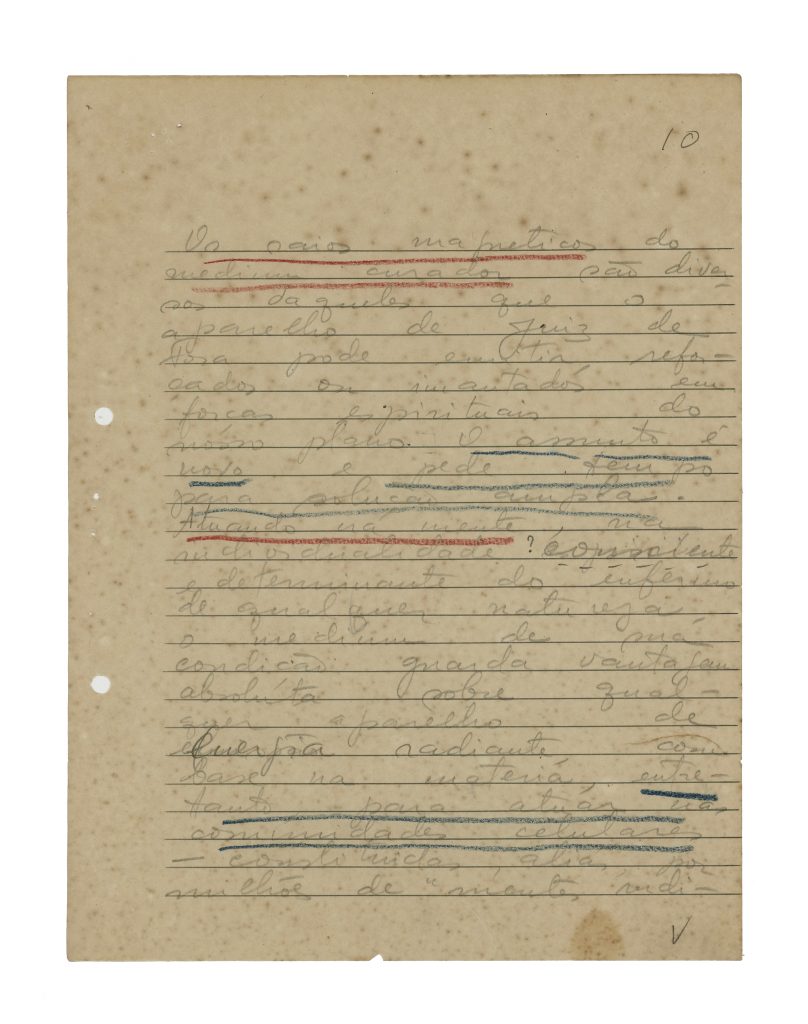 10
Os raios magneticos do
medium curador são diver-
sos daqueles que o
aparelho de Juiz de
Fora pode emitir refor-
çados ou imantados em
forças espirituais do
nosso plano. O assunto é
novo e pede tempo
para solução ampla.
Atuando na mente, na
individualidade ? consciente
e determinante do enfermo
de qualquer natureza
o medium de sua
condição guarda vantagem
absoluta sobre qual-
quer aparelho de
energia radiante com
base na materia, entre-
tanto para atuar nas
comunidades celulares
— constituidas, aliás, por
milhões de "mentes rudi-
V